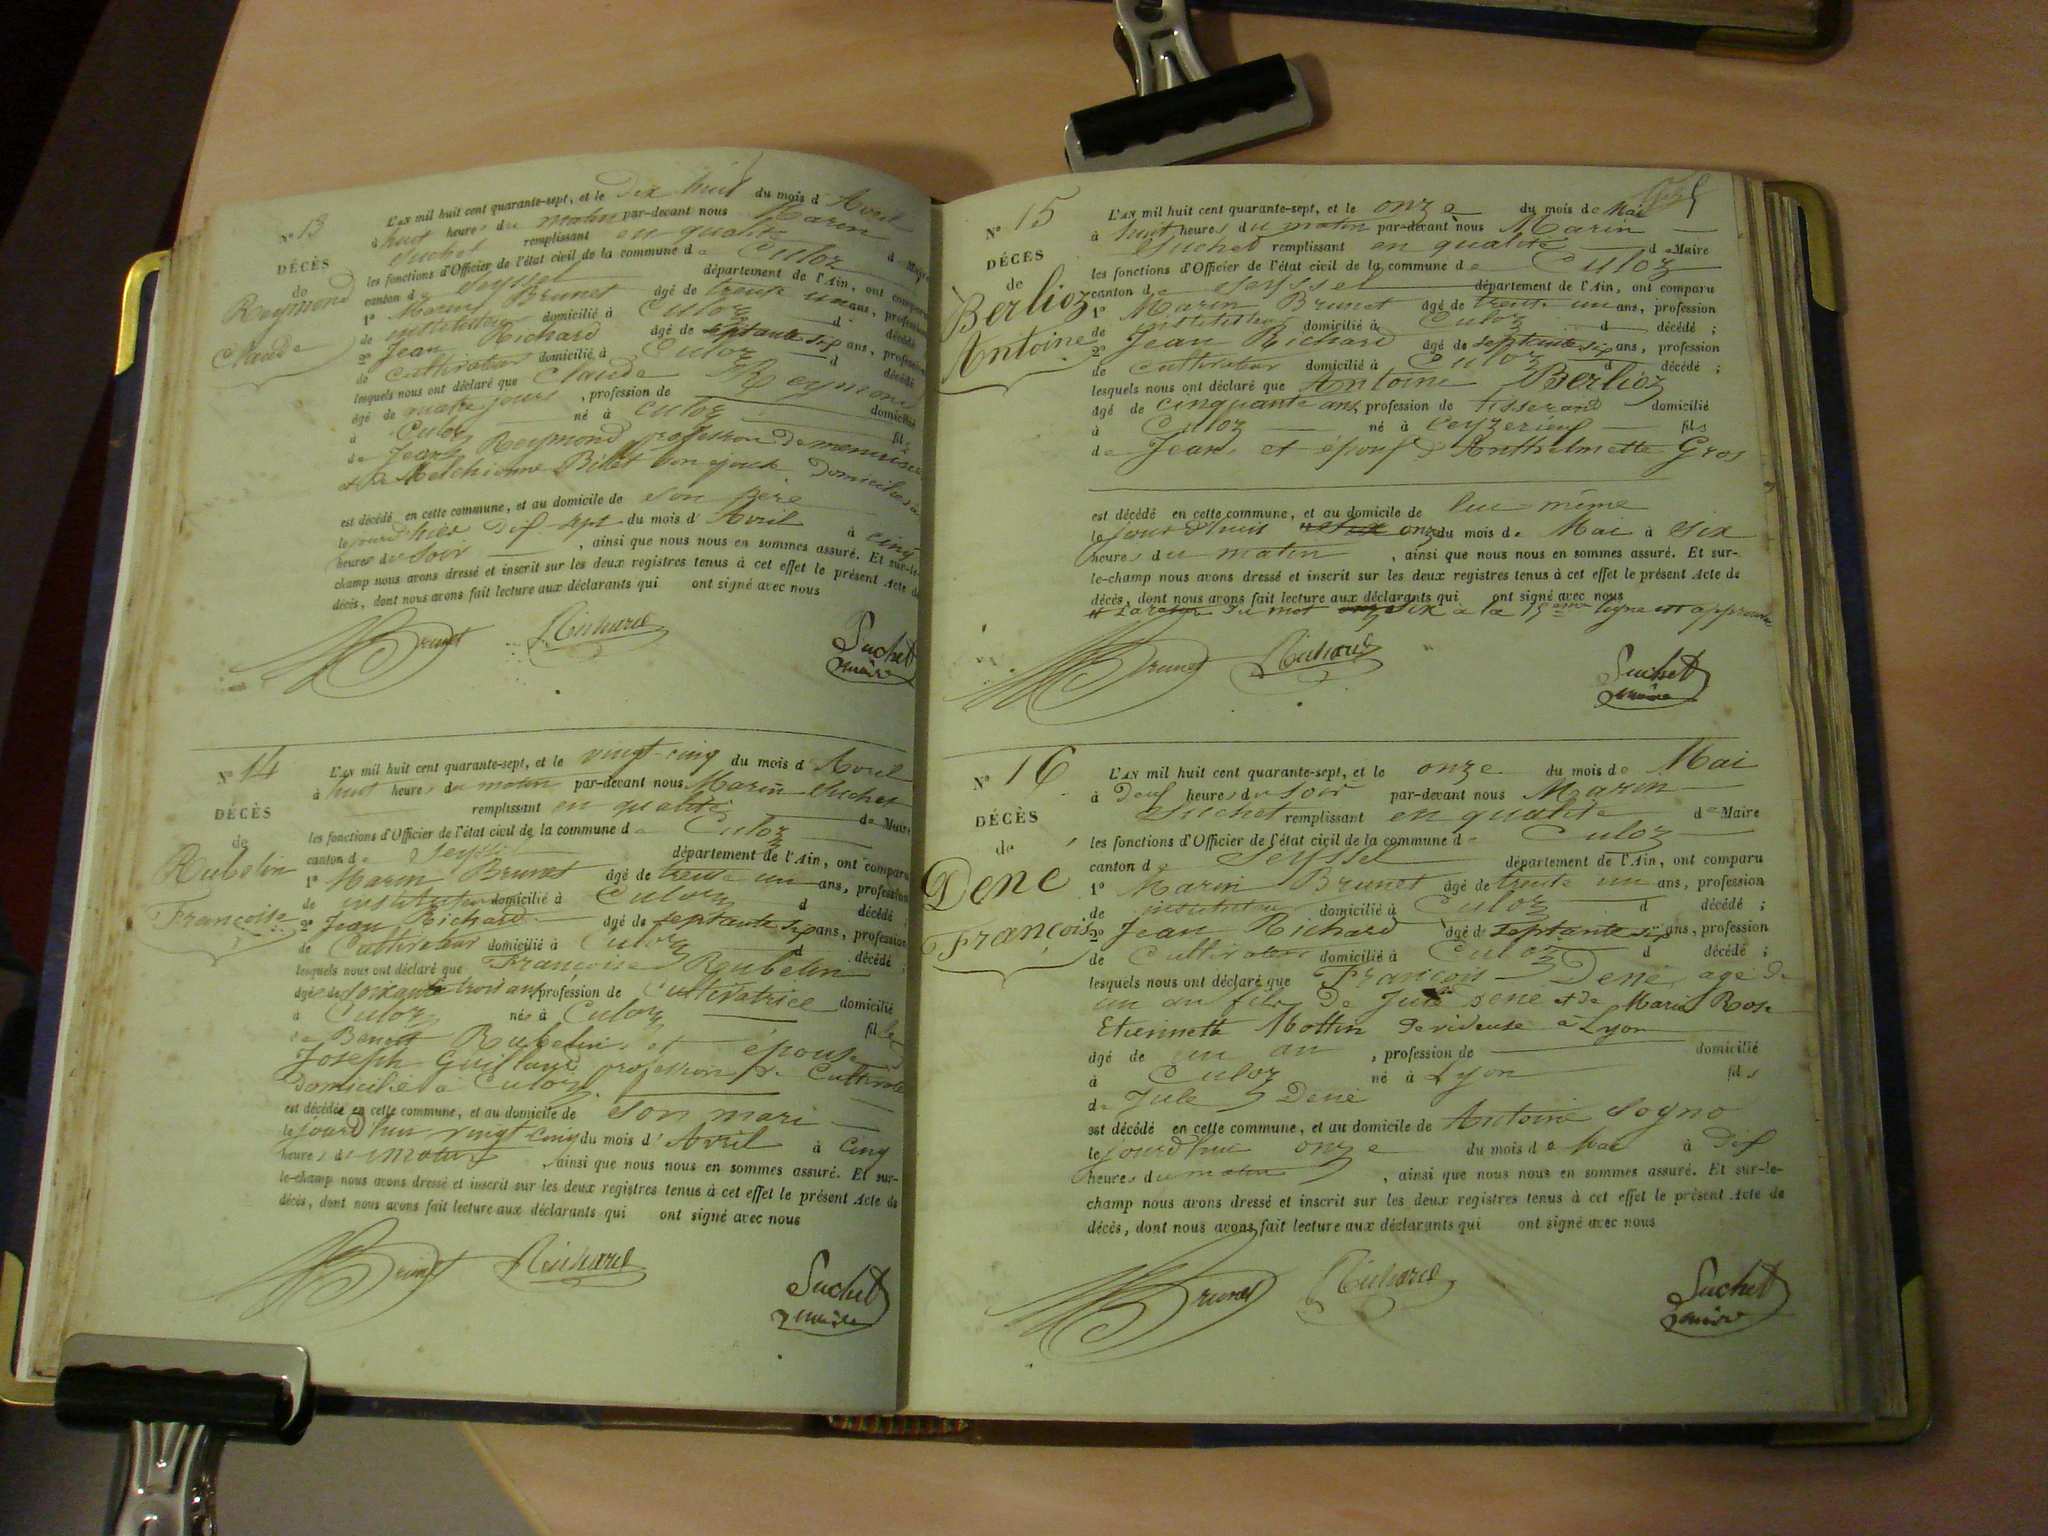 N° 13
DÉCÈS
de
Reymond
Claude
L'AN mil huit cent quarante-sept, et le dix huit du mois d'Avril
à huit heures du matin par-devant nous Marin
Suchet remplissant en qualité de Maire
les fonctions d'Officier de l'état civil de la commune de Culoz
canton de Seyssel département de l'Ain, ont comparu
1° Marin Brunet âgé de trente un ans, profession
de instituteur domicilié à Culoz d décédé
2° Jean Richard âgé de septante six ans, profession
de cultivateur domicilié à Culoz d décédé
lesquels nous ont déclaré que Claude Reymond
âgé de quatre jours, profession de domicilié
à Culoz né à Culoz fils
de Jean Reymond profession de menuisier
et de Melchionne Billet son épouse domiciliés à
est décédé en cette commune, et au domicile de son père
le jourd'hier dix-sept du mois d'Avril à cinq
heures du soir, ainsi que nous nous en sommes assuré. Et sur-le-
champ nous avons dressé et inscrit sur les deux registres tenus à cet effet le présent Acte de
décès, dont nous avons fait lecture aux déclarants qui ont signé avec nous
Brunet Richard Suchet
maire
N° 14
DÉCÈS
de
Rubelin
Françoise
L'AN mil huit cent quarante-sept, et le vingt-cinq du mois d'Avril
à huit heures du matin par-devant nous Marin Suchet
remplissant en qualité de Maire
les fonctions d'Officier de l'état civil de la commune de Culoz
canton de Seyssel département de l'Ain, ont comparu
1° Marin Brunet âgé de trente un ans, profession
de instituteur domicilié à Culoz d décédé ;
2° Jean Richard âgé de septante six ans, profession
de Cultivateur domicilié à Culoz d décédé ;
lesquels nous ont déclaré que Françoise Rubelin
âgée de soixante trois ans, profession de Cultivatrice domicilié
à Culoz née à Culoz fille
de Benoit Rubelin et épouse
Joseph Guilland profession de Cultivateur
domicilié à Culoz
est décédée en cette commune, et au domicile de son mari
le jourd'hui vingt-cinq du mois d'Avril à cinq
heures du matin, ainsi que nous nous en sommes assuré. Et sur-
le-champ nous avons dressé et inscrit sur les deux registres tenus à cet effet le présent Acte de
décès, dont nous avons fait lecture aux déclarants qui ont signé avec nous
Brunet Richard Suchet
maire
N° 15
DÉCÈS
de
Berlioz
Antoine
L'AN mil huit cent quarante-sept, et le onze du mois de Mai
à huit heures du matin par-devant nous Marin
Suchet remplissant en qualité de Maire
les fonctions d'Officier de l'état civil de la commune de Culoz
canton de Seyssel département de l'Ain, ont comparu
1° Marin Brunet âgé de trente un ans, profession
de instituteur domicilié à Culoz d décédé ;
2° Jean Richard âgé de septante six ans, profession
de cultivateur domicilié à Culoz d décédé ;
lesquels nous ont déclaré que Antoine Berlioz
âgé de cinquante ans, profession de tisserand domicilié
à Culoz né à Ceyzerieu fils
de Jean et époux d'Anthelmette Gros
est décédé en cette commune, et au domicile de lui-même
le jour d'hui onze du mois de Mai à six
heures du matin, ainsi que nous nous en sommes assuré. Et sur-
le-champ nous avons dressé et inscrit sur les deux registres tenus à cet effet le présent Acte de
décès, dont nous avons fait lecture aux déclarants qui ont signé avec nous
du mot six à la 15ème ligne est approuvée
Brunet Richard Suchet
maire
N° 16
DÉCÈS
de
Dené
François
L'AN mil huit cent quarante-sept, et le onze du mois de Mai
à deux heures du soir par-devant nous Marin
Suchet remplissant en qualité de Maire
les fonctions d'Officier de l'état civil de la commune de Culoz
canton de Seyssel département de l'Ain, ont comparu
1° Marin Brunet âgé de trente un ans, profession
de instituteur domicilié à Culoz d décédé ;
2° Jean Richard âgé de septante six ans, profession
de Cultivateur domicilié à Culoz d décédé ;
lesquels nous ont déclaré que François Dené, agé de
un an fils de Jule Dené et de Marie Rose
Etiennette Mottin devideuse à Lyon
âgé de un an, profession de domicilié
à Culoz né à Lyon fils
de Jule Dené
est décédé en cette commune, et au domicile de Antoine Sogno
le jourd'hui onze du mois de Mai à dix
heures du matin, ainsi que nous nous en sommes assuré. Et sur-le-
champ nous avons dressé et inscrit sur les deux registres tenus à cet effet le présent Acte de
décès, dont nous avons fait lecture aux déclarants qui ont signé avec nous
Brunet Richard Suchet
maire